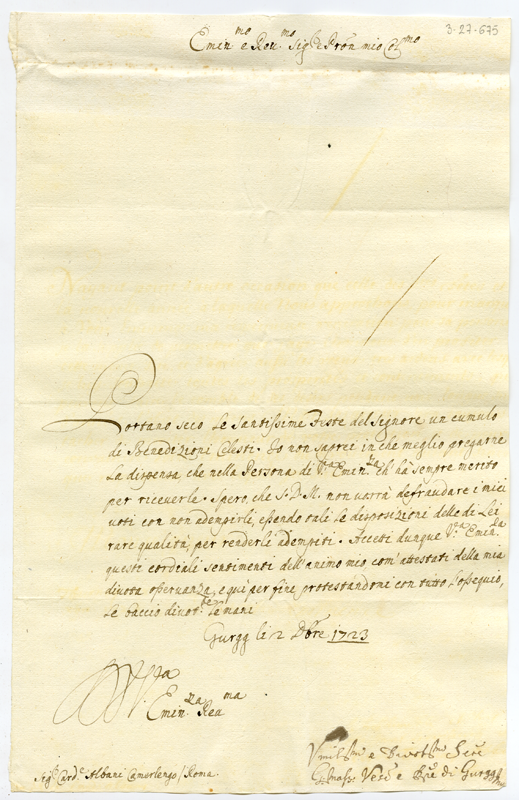 3-27-675
Emin.mo e Rev.mo Sig.re P.ron mio Col.mo
Portano seco le santissime Feste del Signore un cumulo
di Benedizioni Celesti. Io non saprei in che meglio pregarne
la dispensa, che nella Persona di V.ra Emin.za Ch'hà sempre merito
per riceverle. Spero, che S.D.M. non vorrà defraudare i miei
voti con non adempirli, essendo tali le disposizioni delle di Lei
rare qualità, per renderli adempiti. Accetti dunque V.ra Emin.za
questi cordiali sentimenti dell'animo mio, com'attestati della mia
divota osservanza, e quì per fine protestandomi con tutto l'ossequio,
le baccio divot.te le mani
Gurgg li 2 Dbre 1723
V.ra
Emin.za Rev.ma
Umil.mo e Divot.mo Ser.e
Vesc.o e di Gurgg
Sig.r Card.l Albani Camerlengo / Roma.